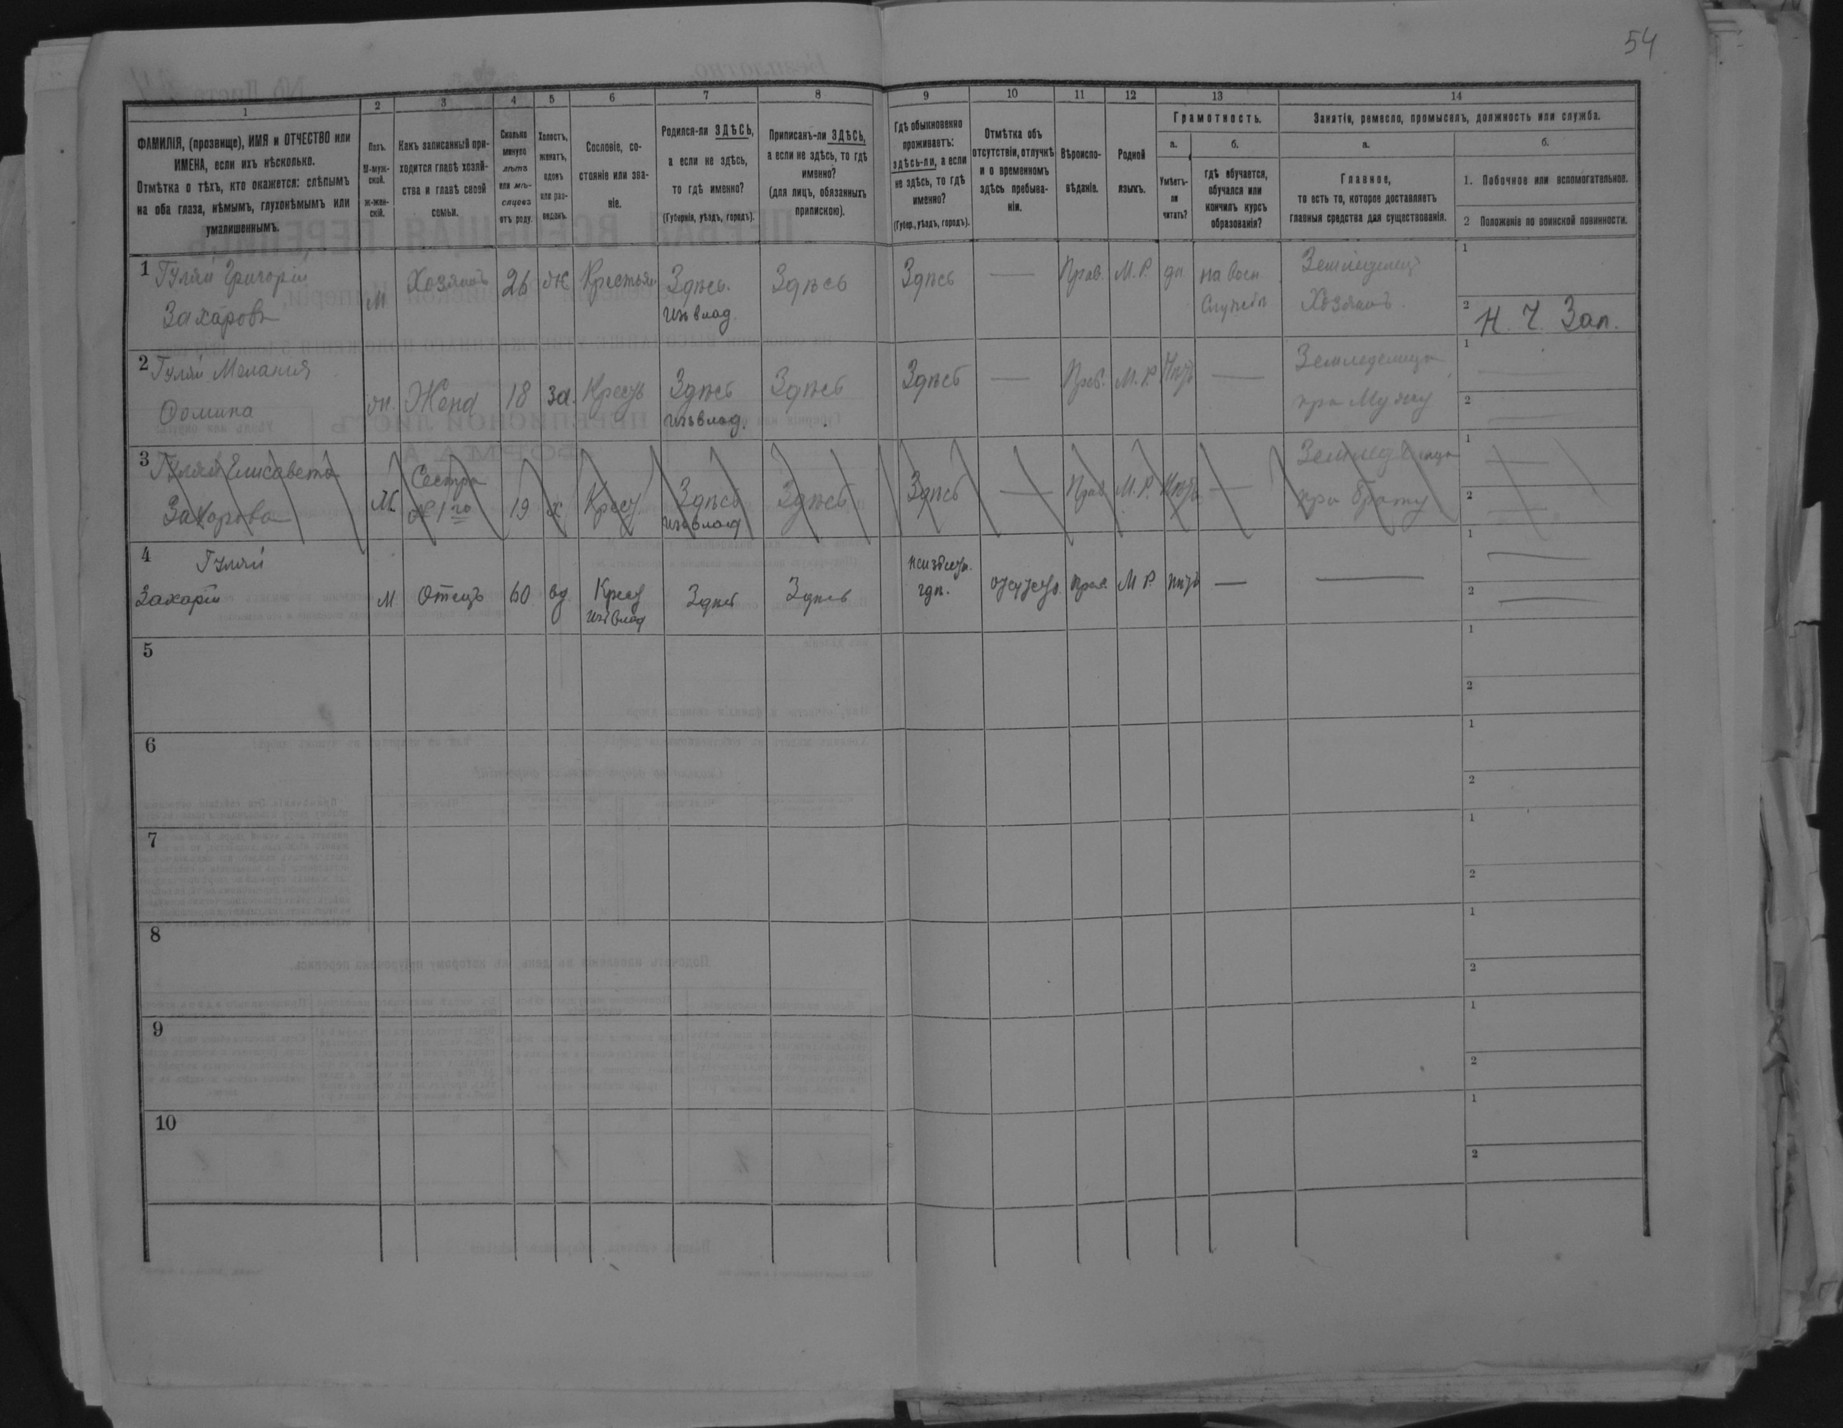 54
1 2 3 4 5 6 7 8 9 10 11 12 13 14
ФАМИЛІЯ, (прозвище), ИМЯ и ОТЧЕСТВО или
ИМЕНА, если ихъ нѣсколько.
Отмѣтка о тѣхъ, кто окажется: слѣпымъ
на оба глаза, нѣмымъ, глухонѣмымъ или
умалишеннымъ.
Полъ.
М-муж-
ской.
Ж-жен-
скій.
Какъ записанный при-
ходится главѣ хозяй-
ства и главѣ своей
семьи.
Сколько
минуло
лѣтъ
или мѣ-
сяцевъ
отъ роду.
Холостъ,
женатъ,
вдовъ
или раз-
веденъ.
Сословіе, со-
стояніе или зва-
ніе.
Родился-ли ЗДѢСЬ,
а если не здѣсь,
то гдѣ именно?
(Губернія, уѣздъ, городъ).
Приписанъ-ли ЗДѢСЬ,
а если не здѣсь, то гдѣ
именно?
(для лицъ, обязанныхъ
припискою).
Гдѣ обыкновенно
проживаетъ:
здѣсь-ли, а если
не здѣсь, то гдѣ
именно?
(Губер., уѣздъ, городъ).
Отмѣтка объ
отсутствіи, отлучкѣ
и о временномъ
здѣсь пребыва-
ніи.
Вѣроиспо-
вѣданіе.
Родной
языкъ.
Грамотность.
а.
Умѣетъ-
ли
читать?
б.
гдѣ обучается,
обучался или
кончилъ курсъ
образованія?
Занятіе, ремесло, промыселъ, должность или служба.
а.
Главное,
то есть то, которое доставляетъ
главныя средства для существованія.
б.
1. Побочное или вспомогательное.
2 Положеніе по воинской повинности.
1 Гуляй Григорій
Захаровъ
М
Хозяинъ
26
ж
Крестьян
Здѣсь.
изъ влад.
Здѣсь
Здѣсь
—
Прав.
М. Р.
да
на воен
службѣ
Земледелецъ
Хозяинъ
1
2 Н. Ч. Зап.
2 Гуляй Мелания
Фомина
ж.
Жена
18
за.
Крест
Здѣсь
изъ влад.
Здѣсь
Здѣсь
—
Прав.
М. Р.
Нѣтъ
—
Земледелица
при Мужу
1 —
2 —
3 Гуляй Елисавета
Захарова
Ж
Сестра
№ 1го
19
х
Крест
Здѣсь
изъ влад
Здѣсь
Здѣсь
—
Прав
М. Р.
Нѣтъ
—
при брату
1 —
2 —
4 Гуляй
Захарій
М
Отецъ
60
вд
Крест
изъ влад
Здѣсь
Здѣсь
—
Прав.
М Р.
нѣтъ
—
—
1 —
2 —
5
1
2
6
1
2
7
1
2
8
1
2
9
1
2
10
1
2